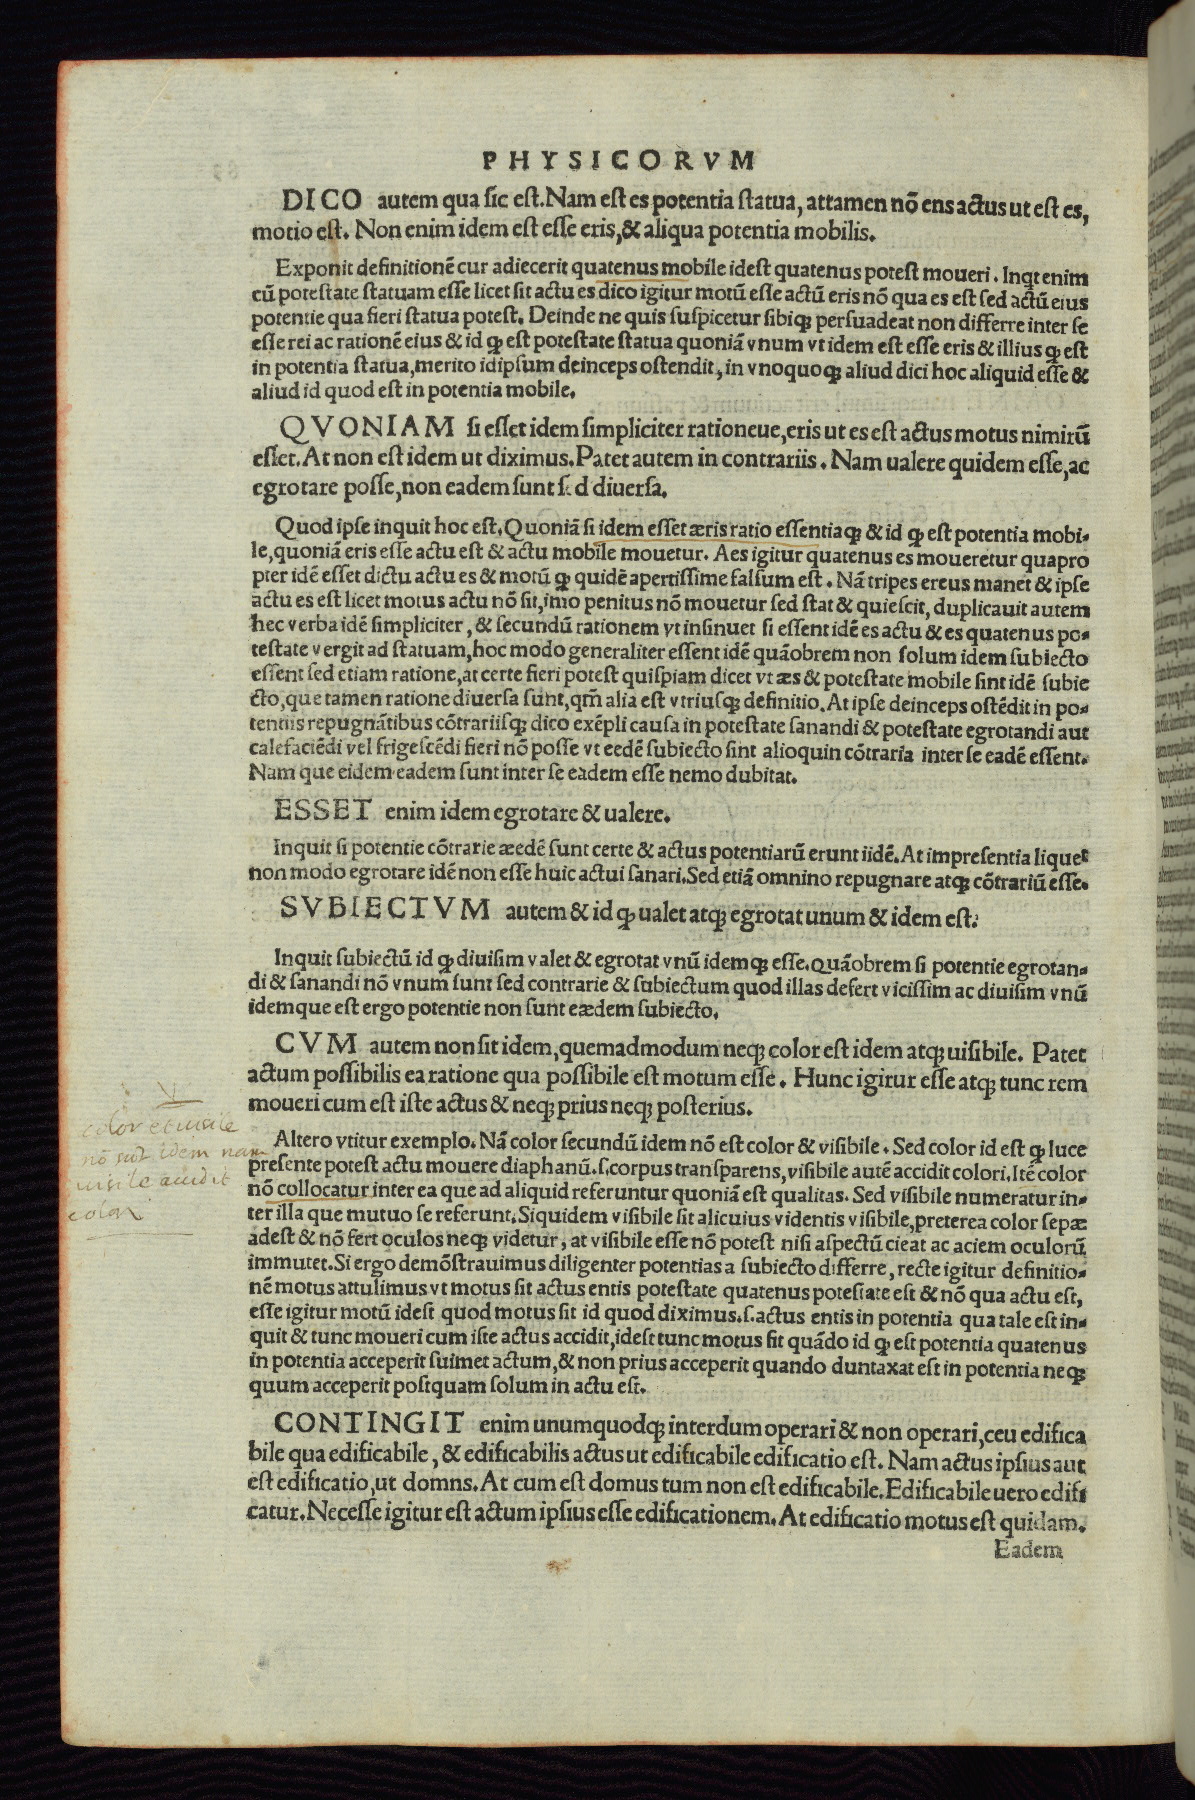 PHYSICORVM
DICO autem qua sic est. Nam est es potentia statua, attamen nõ ens actus ut est es,
motio est. Non enim idem est esse eris, & aliqua potentia mobilis.
Exponit definitionẽ cur adiecerit quatenus mobile idest quatenus potest moueri. Inqt enim
cũ potestate statuam esse licet sit actu es dico igitur motũ esse actũ eris nõ qua es est sed actũ eius
potentie qua fieri statua potest. Deinde ne quis suspicetur sibiqꝫ persuadeat non differre inter se
esse rei ac rationẽ eius & id qꝫ est potestate statua quoniã vnum vt idem est esse eris & illius qꝫ est
in potentia statua, merito idipsum deinceps ostendit, in vnoquoqꝫ aliud dici hoc aliquid esse &
aliud id quod est in potentia mobile.
QVONIAM si esset idem simpliciter rationeue, eris ut es est actus motus nimirũ
esset. At non est idem ut diximus. Patet autem in contrariis. Nam ualere quidem esse, ac
egrotare posse, non eadem sunt s. d diuersa.
Quod ipse inquit hoc est. Quoniã si idem esset æris ratio essentiaqꝫ & id qꝫ est potentia mobi-
le, quoniã eris esse actu est & actu mobile mouetur. Aes igitur quatenus es moueretur quapro
pter idẽ esset dictu actu es & motũ qꝫ quidẽ apertissime falsum est. Nã tripes ereus manet & ipse
actu es est licet motus actu nõ sit, imo penitus nõ mouetur sed stat & quiescit, duplicauit autem
hec verba idẽ simpliciter, & secundũ rationem vt insinuet si essent idẽ es actu & es quatenus po-
testate vergit ad statuam, hoc modo generaliter essent idẽ quãobrem non solum idem subiecto
essent sed etiam ratione, at certe fieri potest quispiam dicet vt æs & potestate mobile sint idẽ subie
cto, que tamen ratione diuersa sunt, qm̃ alia est vtriusqꝫ definitio. At ipse deinceps ostẽdit in po-
tentiis repugnãtibus cõtrariisqꝫ dico exẽpli causa in potestate sanandi & potestate egrotandi aut
calefaciẽdi vel frigescẽdi fieri nõ posse vt eedẽ subiecto sint alioquin cõtraria inter se eadẽ essent.
Nam que eidem eadem sunt inter se eadem esse nemo dubitat.
ESSET enim idem egrotare & ualere.
Inquit si potentie cõtrarie æedẽ sunt certe & actus potentiarũ erunt iidẽ. At impresentia liquet
non modo egrotare idẽ non esse huic actui sanari. Sed etiã omnino repugnare atqꝫ cõtrariũ esse.
SVBIECTVM autem & id qꝫ ualet atqꝫ egrotat unum & idem est.
Inquit subiectũ id qꝫ diuisim valet & egrotat vnũ idemqꝫ esse. quãobrem si potentie egrotan-
di & sanandi nõ vnum sunt sed contrarie & subiectum quod illas defert vicissim ac diuisim vnũ
idemque est ergo potentie non sunt eædem subiecto.
CVM autem non sit idem, quemadmodum neqꝫ color est idem atqꝫ uisibile. Patet
actum possibilis ea ratione qua possibile est motum esse. Hunc igitur esse atqꝫ tunc rem
moueri cum est iste actus & neqꝫ prius neqꝫ posterius.
color et uisile
nõ sut idem nam
uisile accidit
color
Altero vtitur exemplo. Nã color secundũ idem nõ est color & visibile. Sed color id est qꝫ luce
presente potest actu mouere diaphanũ. s. corpus transparens, visibile autẽ accidit colori. Itẽ color
nõ collocatur inter ea que ad aliquid referuntur quoniã est qualitas. Sed visibile numeratur in-
ter illa que mutuo se referunt. Siquidem visibile sit alicuius videntis visibile, preterea color sepæ
adest & nõ fert oculos neqꝫ videtur, at visibile esse nõ potest nisi aspectũ cieat ac aciem oculorũ
immutet. Si ergo demõstrauimus diligenter potentias a subiecto differre, recte igitur definitio-
nẽ motus attulimus vt motus sit actus entis potestate quatenus potestate est & nõ qua actu est,
esse igitur motũ idest quod motus sit id quod diximus. s. actus entis in potentia qua tale est in-
quit & tunc moueri cum iste actus accidit, idest tunc motus fit quãdo id qꝫ est potentia quatenus
in potentia acceperit suimet actum, & non prius acceperit quando duntaxat est in potentia neqꝫ
quum acceperit postquam solum in actu est.
CONTINGIT enim unumquodqꝫ interdum operari & non operari, ceu edifica
bile qua edificabile, & edificabilis actus ut edificabile edificatio est. Nam actus ipsius aut
est edificatio, ut domns. At cum est domus tum non est edificabile. Edificabile uero edifi
catur. Necesse igitur est actum ipsius esse edificationem. At edificatio motus est quidam.
Eadem